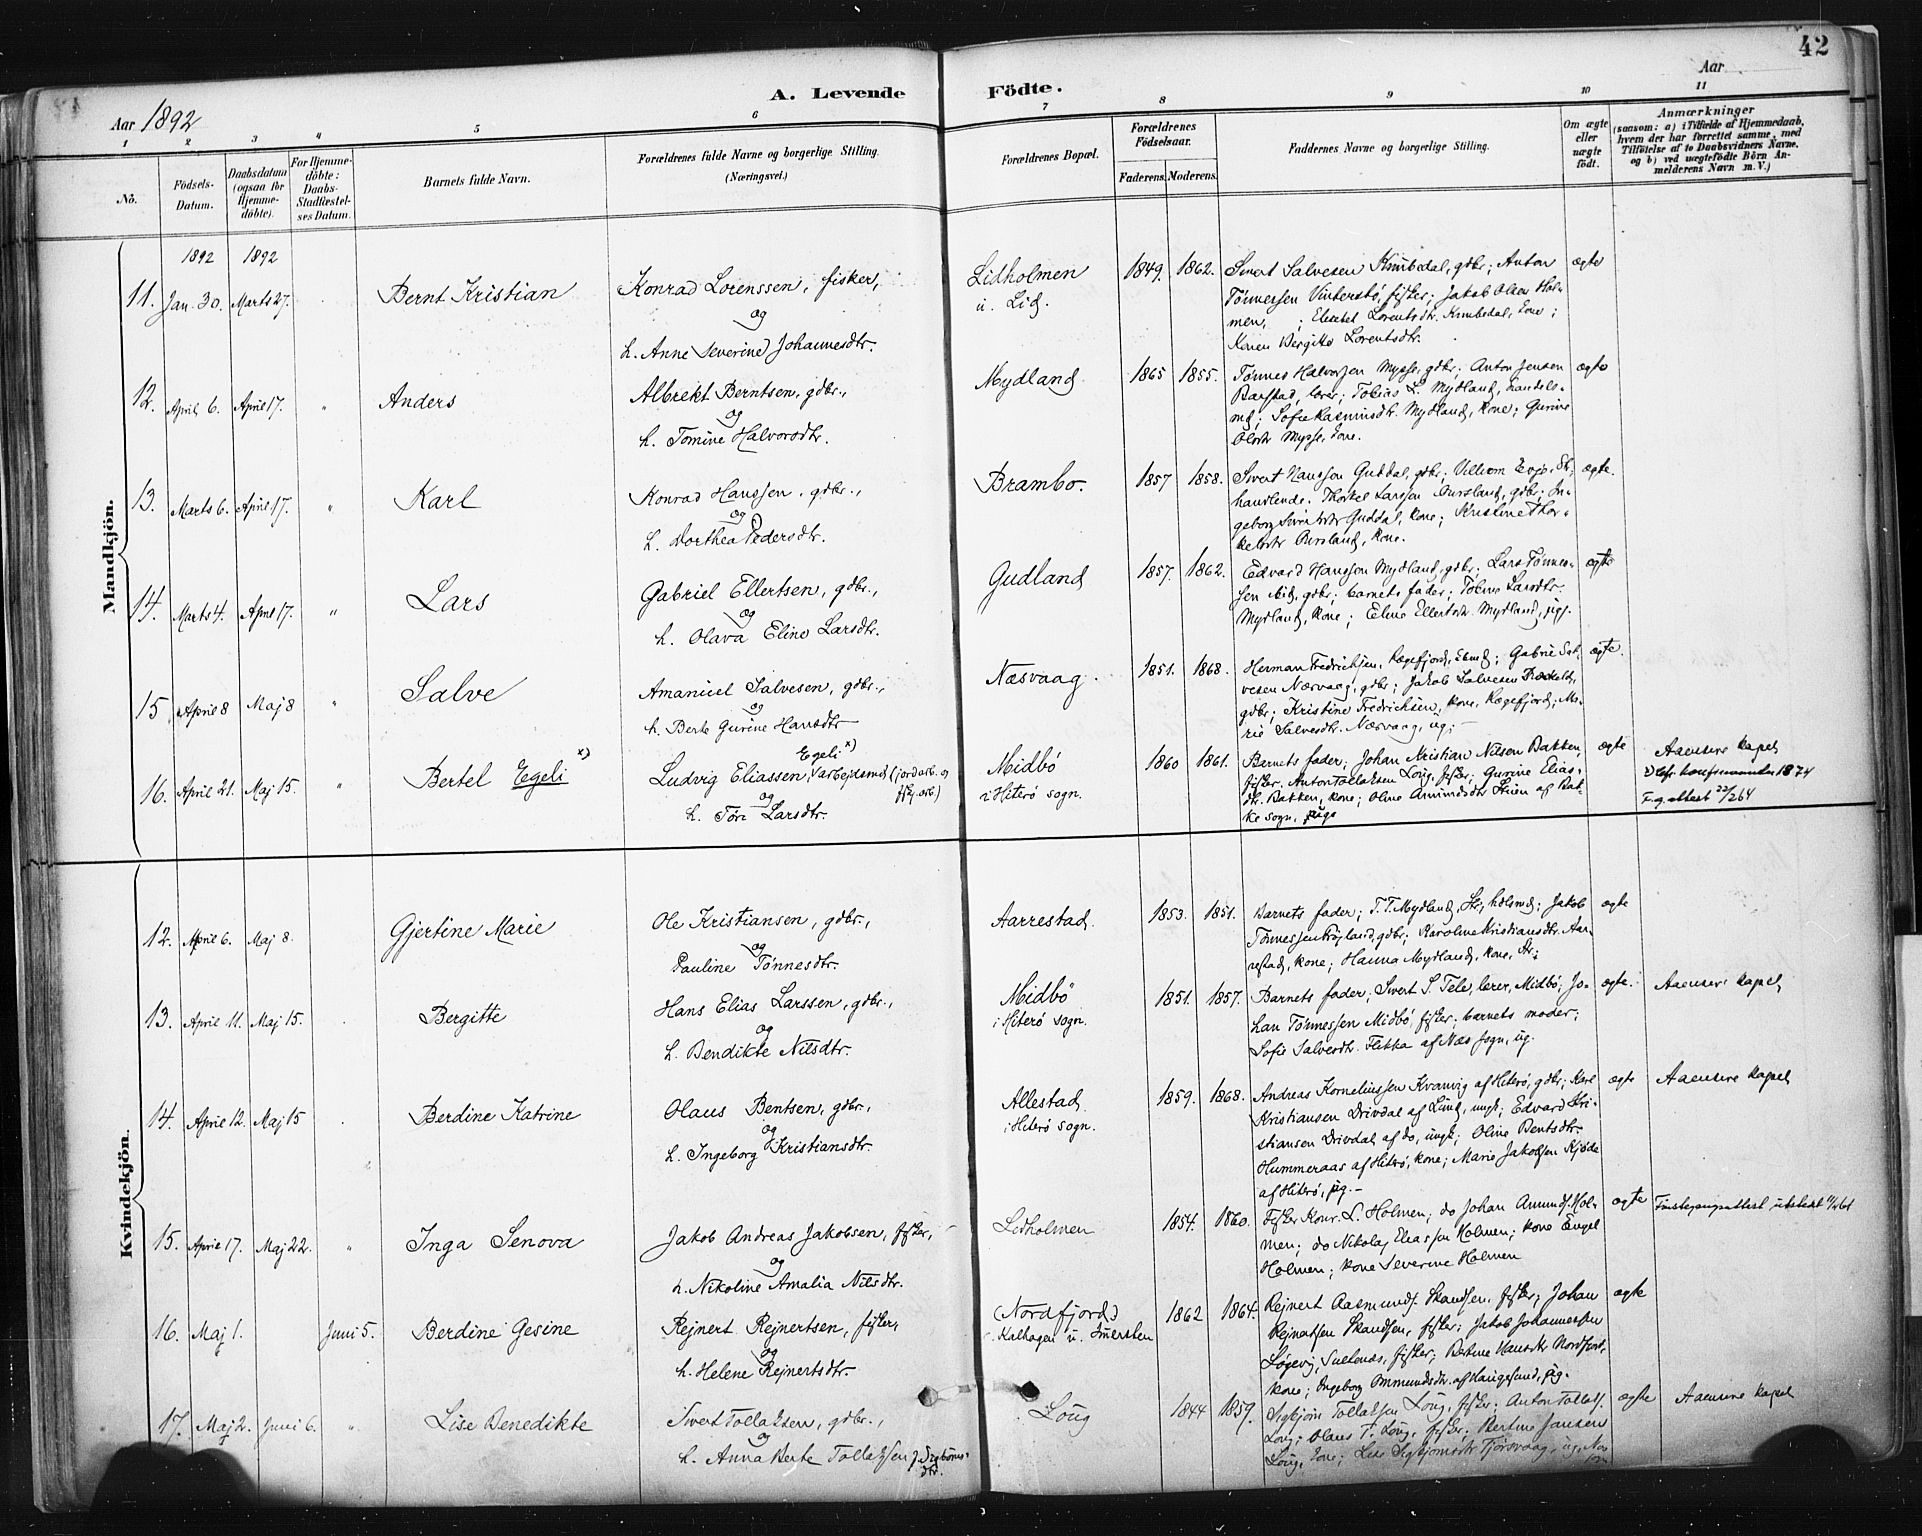 42
Aar 1892
A. Levende Födte.
Aar
1 2 3 4 5 6 7 8 9 10 11
No.
Födsels-Datum.
Daabsdatum (ogsaa for Hjemme-döbte).
For Hjemme-döbte: Daabs-Stadfæstel-ses Datum.
Barnets fulde Navn.
Forældrenes fulde Navne og borgerlige Stilling. (Næringsvei.)
Forældrenes Bopæl.
Forældrenes Födselsaar.
Faderens. Moderens.
Faddernes Navne og borgerlige Stilling.
Om ægte eller uægte födt.
Anmærkninger
(saasom: a) i Tilfælde af Hjemmedaab, hvem der har forrettet samme, med Tilföielse af to Daabsvidners Navne. og b) ved uægtefödte Börn An-melderens Navn m. V.)
Mandkjön.
1892 1892
11. Jan. 30. Marts 27. Bernt Kristian
Konrad Lorenssen, fisker,
og
h. Anne Severine Johannesdtr.
Lidholmen
u. Lid.
1849. 1862.
Sivert Salvesen Kimbedal, gdbr; Anton
Tönnessen Vinterstö, fisker; Jakob Olsen Hol-
men, ; Elisabet Lorentsdtr. Kimbedal, kone;
Karen Bergitte Lorentsdtr.
ægte
12. April 6. April 17. " Anders
Albrekt Berntsen, gdbr.,
og
h. Tomine Halvorsdtr.
Mydland
1865 1855.
Tönnes Halvorsen Mysse, gdbr; Anton Jensen
Barstad, lærer; Tobias L. Mydland, handels-
md; Sofie Rasmusdtr. Mydland, kone; Gurine
Olsdtr Mysse, kone.
ægte
13. Marts 6. April 17. " Karl
Konrad Hanssen, gdbr.,
og
h. Dorthea Pedersdtr.
Brambo.
1857 1858.
Sivert Hanssen Guddal, gdbr; Villum Evje, St.
handlende; Thorkel Larssen Aursland, gdbr; In-
geborg Sivertsdtr Guddal, kone; Kristine Thor-
kelsdtr Aursland, kone.
ægte.
14. Marts 4. April 17. " Lars
Gabriel Ellertsen, gdbr.,
og
h. Olava Eline Larsdtr.
Gudland
1857. 1862.
Edvard Hanssen Mydland, gdbr; Lars Tönnes-
sen Lid, gdbr; barnets fader; Tobine Larsdtr.
Mydland, kone; Eline Ellertsdtr. Mydland, pige.
ægte
15 April 8 Maj 8 " Salve
Amanuel Salvesen, gdbr.,
og
h. Berte Gurine Hansdtr
Næsvaag.
1851. 1868.
Herman Fredriksen, Rægefjord, ; Gabriel Sal-
vesen Næsvaag, gdbr; Jakob Salvesen ,
gdbr; Kristine Fredriksen, kone, Rægefjord; Ma-
rie Salvesdtr. Næsvaag, ug.
ægte.
16. April 21. Maj 15. " Bertel Egeli x)
Egeli x)
Ludvig Eliassen, arbejdsmd (jordarb. og
fisk. arb)
og
h. Töri Larsdtr.
Midbö
i Hiterö sogn.
1860 1861.
Barnets fader; Johan Kristian Nilsen Bakken,
fisker; Anton Tollaksen Loug, fisker; Gurine Elias-
dtr. Bakken, kone; Oline Amundsdtr Stien af Bak-
ke sogn, pige
ægte
Aaensire kapel
F. g. attest 22/2 64
Kvindekjön.
12. April 6. Maj 8. Gjertine Marie
Ole Kristiansen, gdbr.,
og
Pauline Tönnesdtr.
Aarrestad.
1853. 1851.
Barnets fader; T. T. Mydland, Str., holsmd; Jakob
Tönnessen Frøjland, gdbr; Karoline Kristiansdtr. Aar-
restad, kone; Hanna Mydland, kone, Str.
ægte
13. April 11. Maj 15. Bergitte
Hans Elias Larssen, gdbr.,
og
h. Bendikte Nilsdtr.
Midbö
i Hiterö sogn.
1851. 1857.
Barnets fader; Sivert S. Tele, lærer, Midbö; Jo-
han Tönnessen Midbö, fisker; barnets moder;
Sofie Salvesdtr. Flikka af Næs sogn, ug.
ægte.
Aaensire kapel
14. April 12. Maj 15 Berdine Katrine
Olaus Bentsen, gdbr.,
og
h. Ingeborg Kristiansdtr.
Allestad.
i Hiterö sogn.
1859. 1868.
Andreas Korneliussen Kvanvig af Hiterö, gdbr; Karl
Kristiansen Drivdal af Lund, ungk; Edvard Kri-
stiansen Drivdal af do, ungk; Oline Bentsdtr.
Hummeraas af Hiterö, kone; Marie Jakobsen Kjöde
af Hiterö, pige.-
ægte
Aaensire kapel
15. April 17. Maj 22. " Inga Senova
Jakob Andreas Jakobsen, fisker,
og
h. Nikoline Amalia Nilsdtr.
Lidholmen
1854. 1860.
Fisker Konr. L. Holmen; do Johan Amunds. Hol-
men; do Nikolaj Eliassen Holmen; kone Engel
Holmen; kone Severine Holmen
ægte
16. Maj 1. Juni 5. Berdine Gesine
Rejnert Rejnertsen, fisker,
og
h. Helene Rejnertsdtr.
(Nordfjord)
Kalhagen u.
1862 1864.
Rejnert Aasmunds. Skandsen, fisker; Johan
Rejnertsen Skandsen, fisker; Jakob Johannessen
Løgevig, , fisker; Bertine Hansdtr Nordfjord,
kone; Ingeborg Ommundsdtr. af Haugesund, pige.
ægte
17. Maj 2. Juni 6. " Lise Benedikte
Sivert Tollaksen, gdbr.,
og
h. Anna Berte Tollaksen f. Sigbörns-
dtr.
Loug
1844 1859.
Sigbjörn Tollaksen Loug, fisker; Anton Tollaks.
Loug; Olaus T. Loug, fisker; Bertine Jansen
Loug, kone; Lise Sigbjörnsdtr Tjörsvaag, ug,
ægte
Aaensire kapel